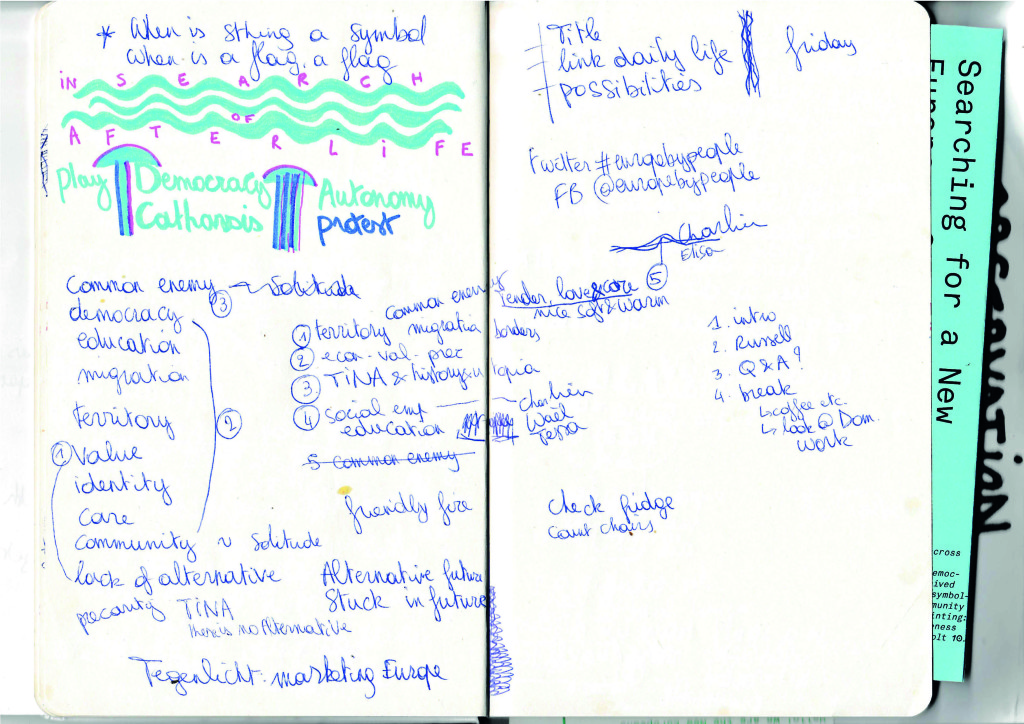 * When is sthing a symbol
When is a flag, a flag
iN SEARCH
OF
AFTERLiFE
play Democracy Autonomy
Catharsis protest
Common enemy ~ Solitude
③
democracy
education
migration
territory
②
① Value
identity
Care
Community ~ Solitude
lack of alternative
precarity TiNA
there is no Alternative
common enemy
① territory migration borders
② econ - val - prec
③ TiNA & history & utopia
④ social emp
education
Charlien
Waël
Tessa
5 Common enemy
friendly fire
Alternative future
Stuck in future
Tegenlicht: marketing Europe
Title
link daily life
possibilities
friday
Twitter #europebypeople
FB @europebypeople
Charlien
Elisa
tender, love & care ⑤
nice soft & warm
1. intro
2. Russell
3. Q & A ?
4. break
↳ coffee etc.
↳ look @ Dom.
work
Check fridge
Count chairs.
Searching for a New
cross
emoc-
ived
symbol-
munity
inting:
eness
olt 10.